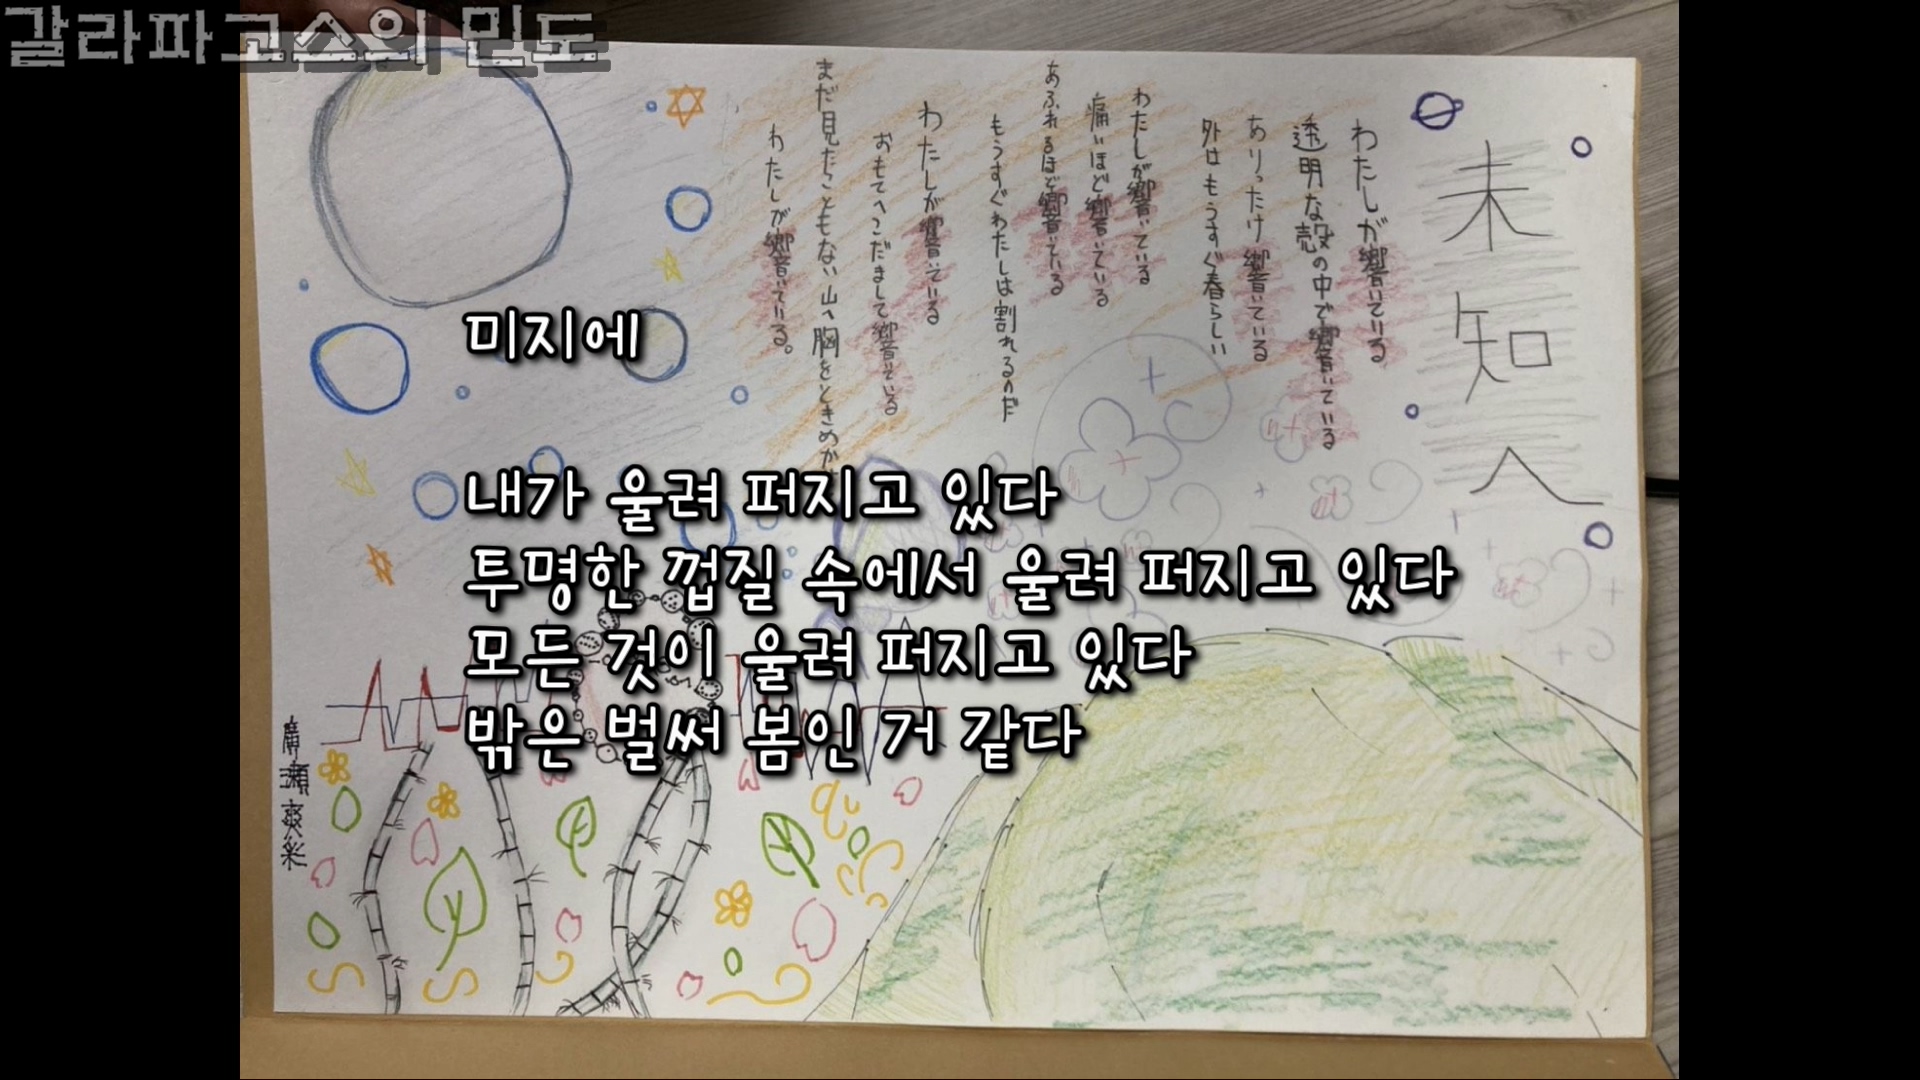 갈라파고스의 민도
未知へ
わたしが響いている
透明な殻の中で響いている
ありったけ響いている
外はもうすぐ春らしい
わたしが響いている
痛いほど響いている
あふれるほど響いている
もうすぐわたしは割れるのだ
わたしが響いている
おもてへこだまして響いている
まだ見たこともない山へ胸をときめかせ
わたしが響いている。
廣瀬爽彩
미지에
내가 울려 퍼지고 있다
투명한 껍질 속에서 울려 퍼지고 있다
모든 것이 울려 퍼지고 있다
밖은 벌써 봄인 거 같다